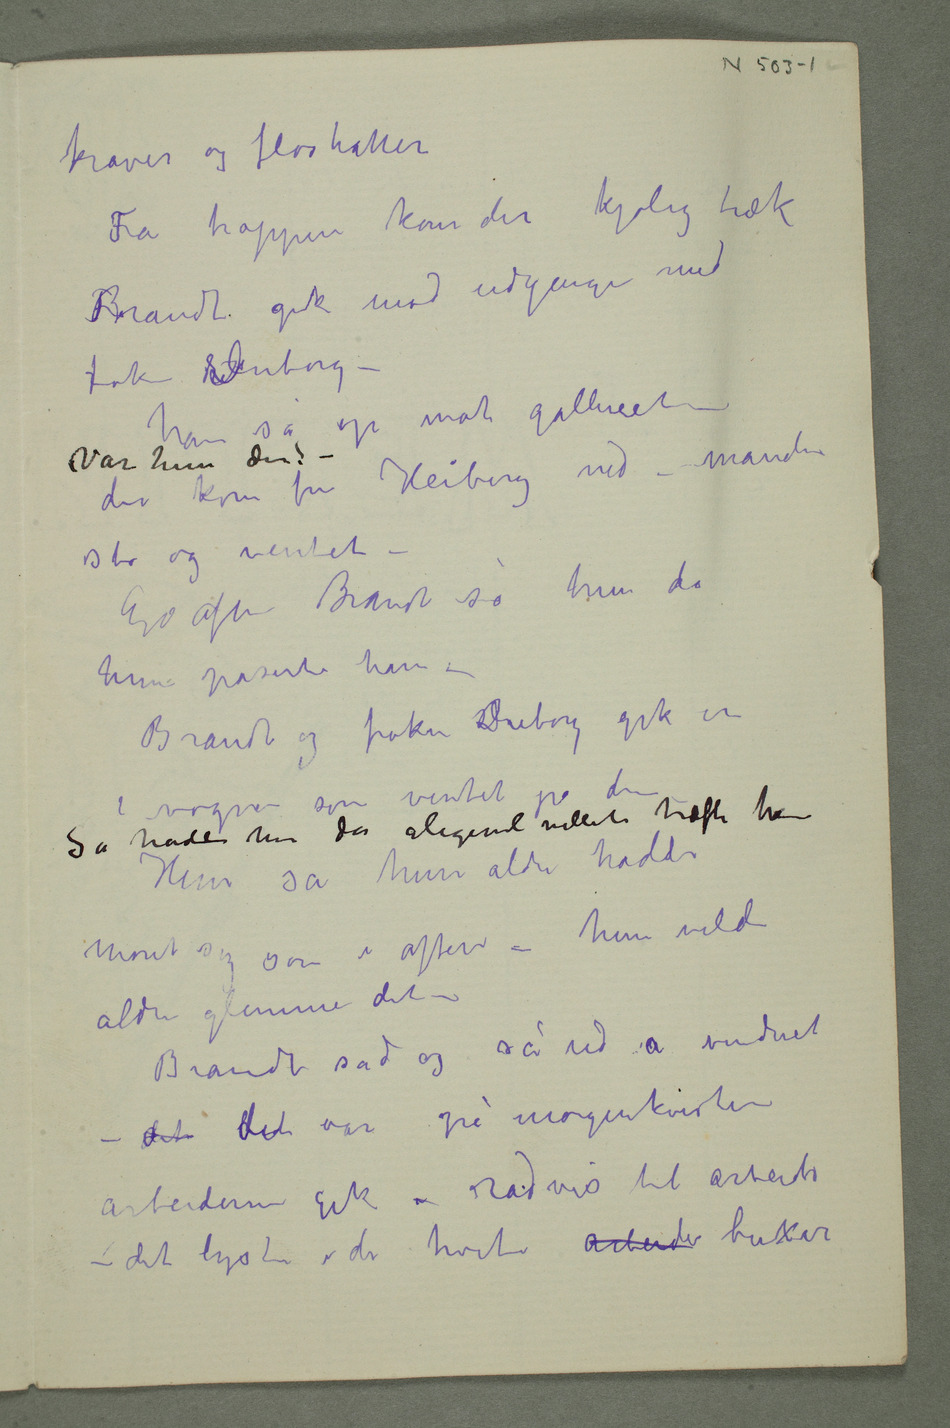 N 503-1
kraver og floshatter
Fra trappen kom der kjølig træk
Brandt gik mod udgangen med
frøken
han så op mot galleriet –
Var hun der? –
der kom fru Heiberg ned – manden
sto og ventet –
God aften Brandt sa hun da
hun paserte ham –
Brandt og frøken gik in
i vognen som ventet på dem
Så hadde hun da aligevel villet træffe ham
Hun sa hun aldri hadde
moret sig som i aften – hun vilde
aldri glemme det –
Brandt sad og så ud a vinduet
– det det var på morgenkvisten
arbeiderne gik – radvis til arbeide
– det lyste i de hvite arbeider buxer